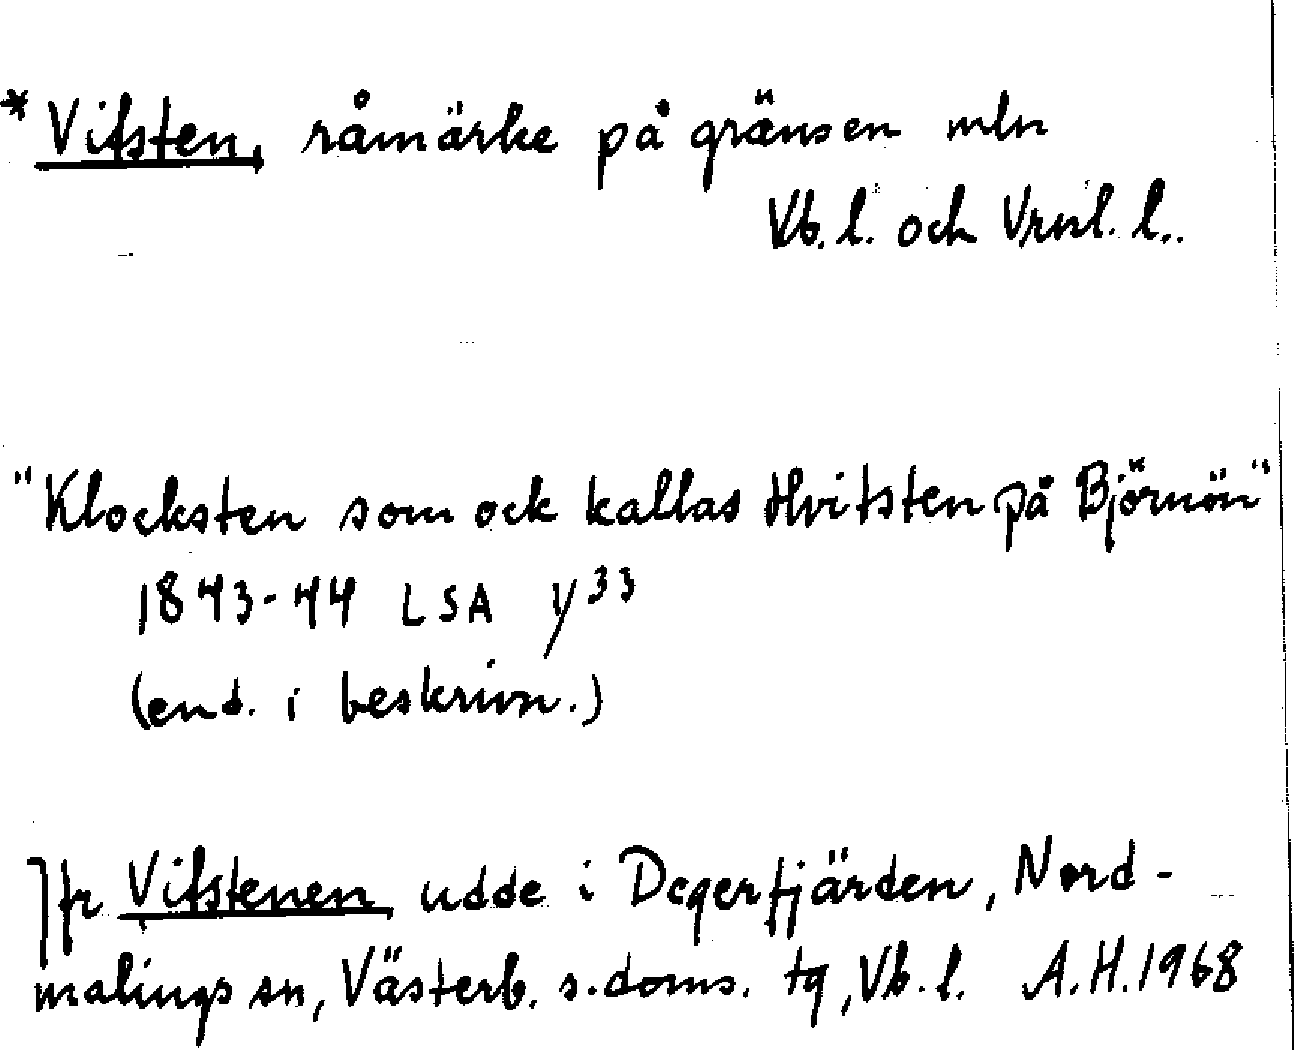 * Vitsten, råmärke på gränsen mln
Vb. l. och Vrnl. l..
"Klocksten som ock kallas Hvitsten på Björnön"
1843-44 LSA y³³
(end. i beskrivn.)
Jfr Vitstenen, udde i Degerfjärden, Nord-
malings sn, Västerb. s. doms. tg, Vb. l. A.H. 1968